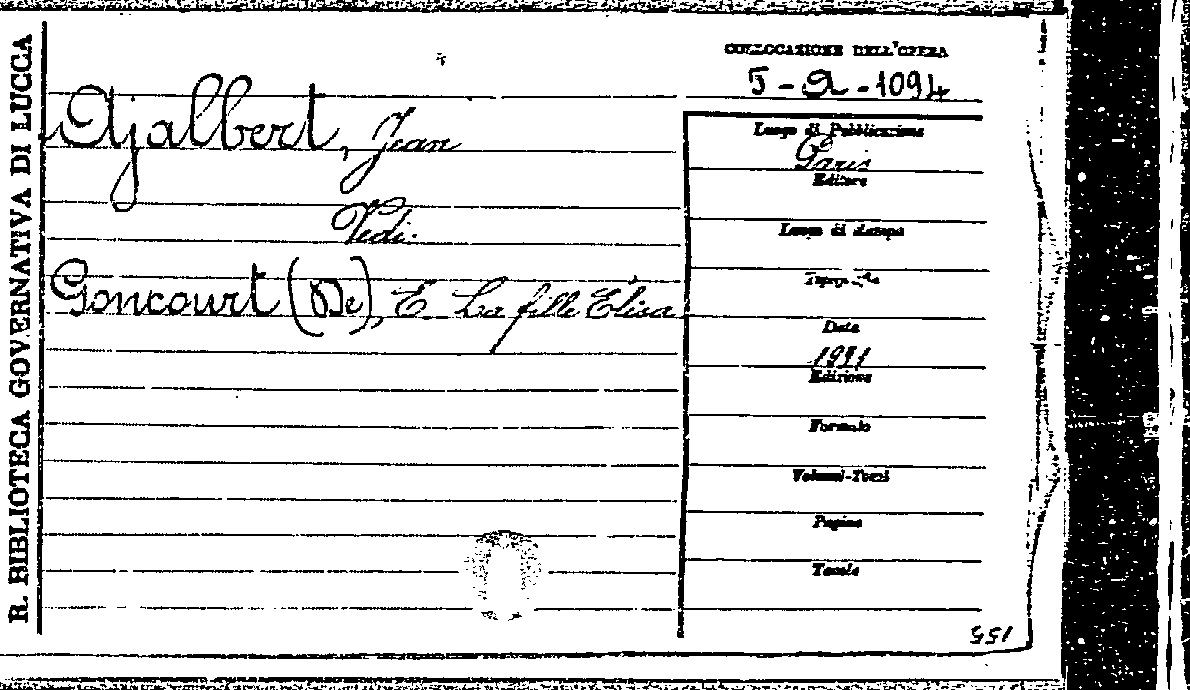 R. BIBLIOTECA GOVERNATIVA DI LUCCA
COLLOCAZIONE DELL'OPERA
5-a-1094
Ajalbert, Jean
Vedi.
Goncourt (De), E. La fille Elisa
Luogo di Pubblicazione
Paris
Editore
Luogo di stampa
Data
1931
Edizione
Formato
Volumi-Tomi
Pagine
Tavole